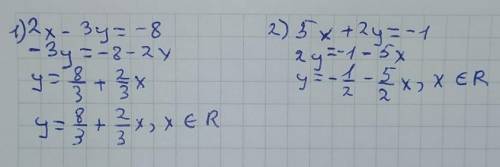 1) 2x - 3y = -8
-3y = -8 - 2x
y = 8/3 + 2/3 x
y = 8/3 + 2/3 x, x ∈ R
2) 5x + 2y = -1
2y = -1 - 5x
y = -1/2 - 5/2 x, x ∈ R